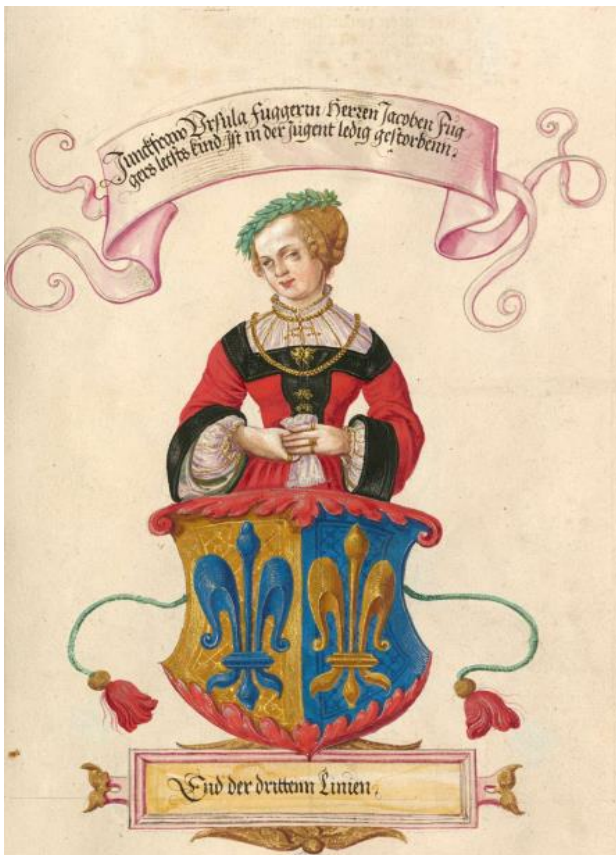 Junckfraw Vrsula Fuggerin Herren Jacoben Fug-
gers letsts kind Ist in der Jugent ledig gestorbenn.
End der drittenn Linien.